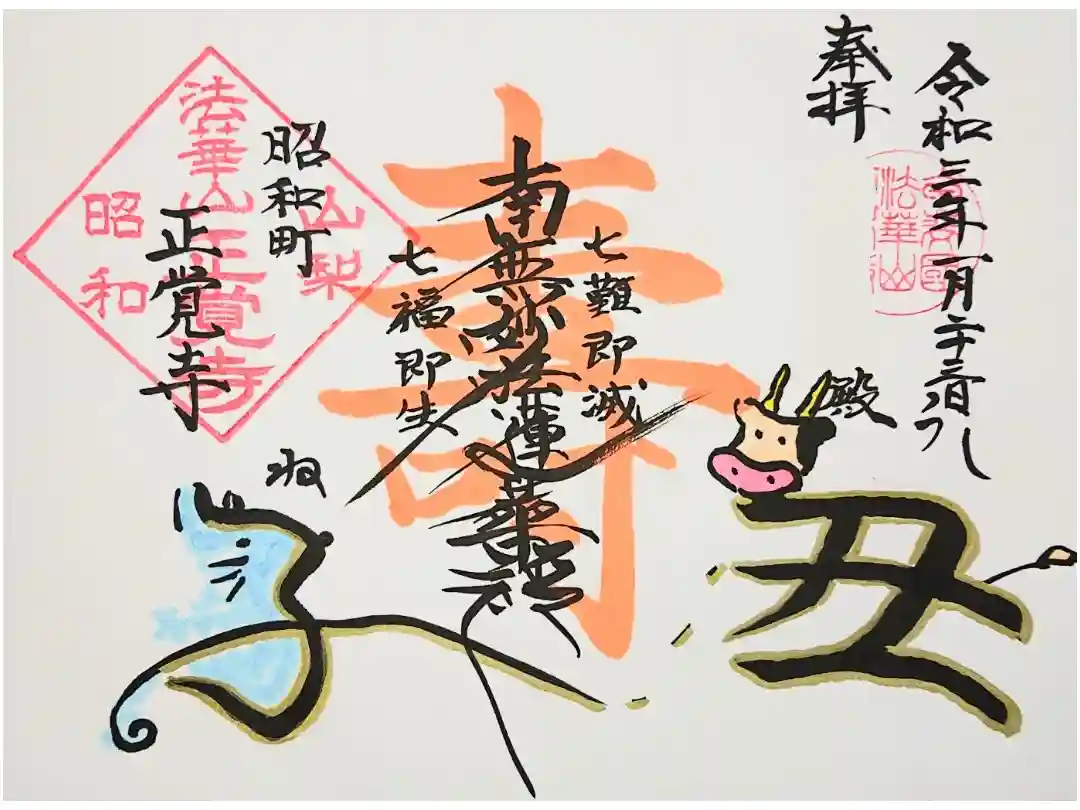 令和三年
奉拝
法華山
殿
丑
壽
七難即滅
南無妙法蓮華経
七福即生
昭和町
正覚寺
山梨
法華山正覚寺
昭和
ね
子